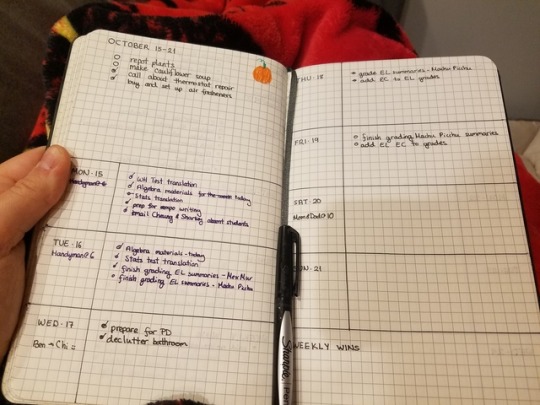 OCTOBER 15-21
repot plants
make cauliflower soup
call about thermostat repair
buy and set up air fresheners
MON·15
Handyman@6
WH Test translation
Algebra materials for the week today
Stats translation
prep for empo writing
email Cheung & Sharkey absent students
TUE·16
Handyman@6
Algebra materials - today
Stats test translation
finish grading EL summaries - Mex Mur
finish grading EL summaries - Machu Pichu
WED·17
Ben → Chi
prepare for PD
declutter bathroom
THU·18
grade EL summaries - Machu Pichu
add EC to EL grades
FRI·19
finish grading Machu Pichu summaries
add EL EC to grades
SAT·20
Mom&Dad@10
SUN·21
WEEKLY WINS
Sharpie. Pen